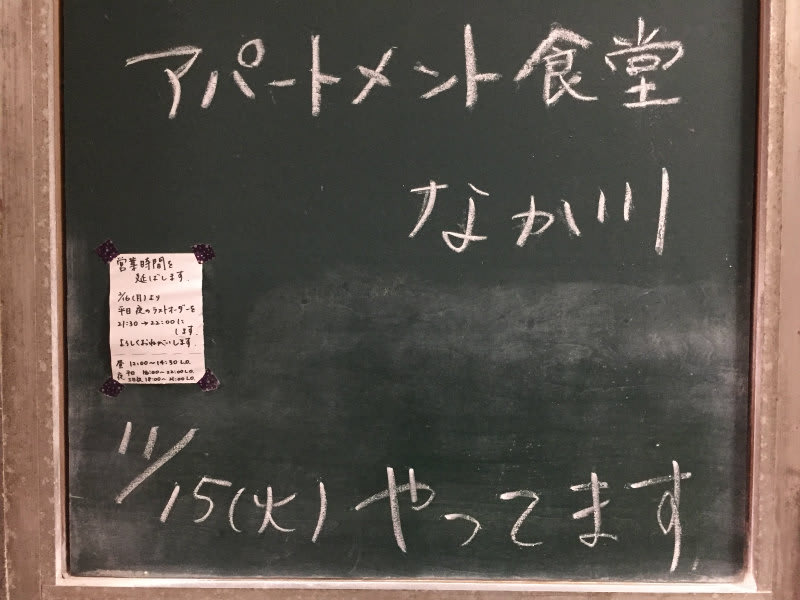 アパートメント食堂
なか川
営業時間を
延ばします.
より
平日 夜のラストオーダーを
21:30→22:00に
します.
よろしくおねがいします.
昼 12:00〜14:30 L.O.
夜 平日 18:00〜22:00 L.O.
11/15(火) やってます